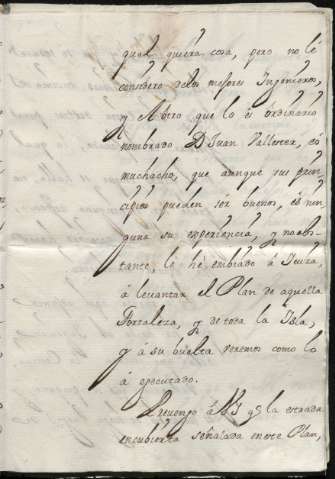 qual quiera cosa, pero no le
considero delos mejores Ingenieros,
y Abro que lo es ordinario
nombrado Dn Juan Vallester, es
muchacho, que aunque sus prin-
cipios pueden ser buenos, es nin-
guna su experiencia, y no obs-
tante, le hè embiado à Iviza,
à levantar el Plan de aquella
Fortaleza, y de toda la Isla,
y à su buelta veremos como lo
à executado.
Prevengo à VS qe la estrada
encubierta señalada eneste Plan,